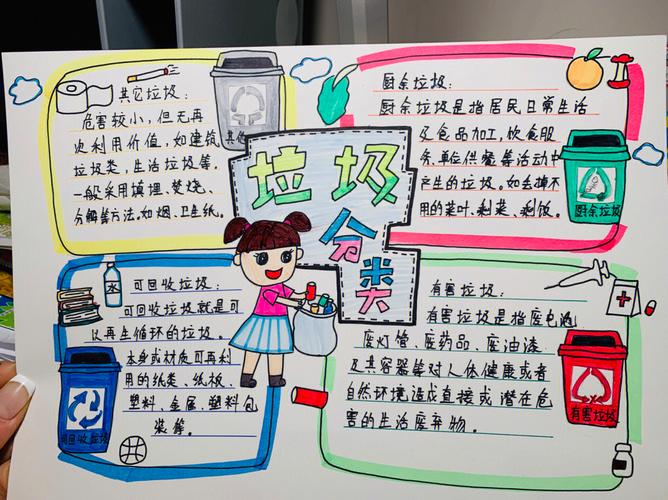 垃圾
分类
其它垃圾：
危害较小，但无再
次利用价值，如建筑
垃圾类，生活垃圾等，
一般采用填埋、焚烧、
分解等方法。如烟、卫生纸。
其他
厨余垃圾：
厨余垃圾是指居民日常生活
及食品加工，饮食服
务，单位供餐等活动中
产生的垃圾。如丢掉不
用的菜叶、剩菜、剩饭。
厨余垃圾
可回收垃圾：
可回收垃圾就是可
以再生循环的垃圾。
本身或材质可再利
用的纸类、纸板、
塑料、金属、塑料包
装等。
水
可回收垃圾
有害垃圾：
有害垃圾是指废电池
废灯管、废药品、废油漆
及其容器等对人体健康或者
自然环境造成直接或潜在危
害的生活废弃物。
有害垃圾